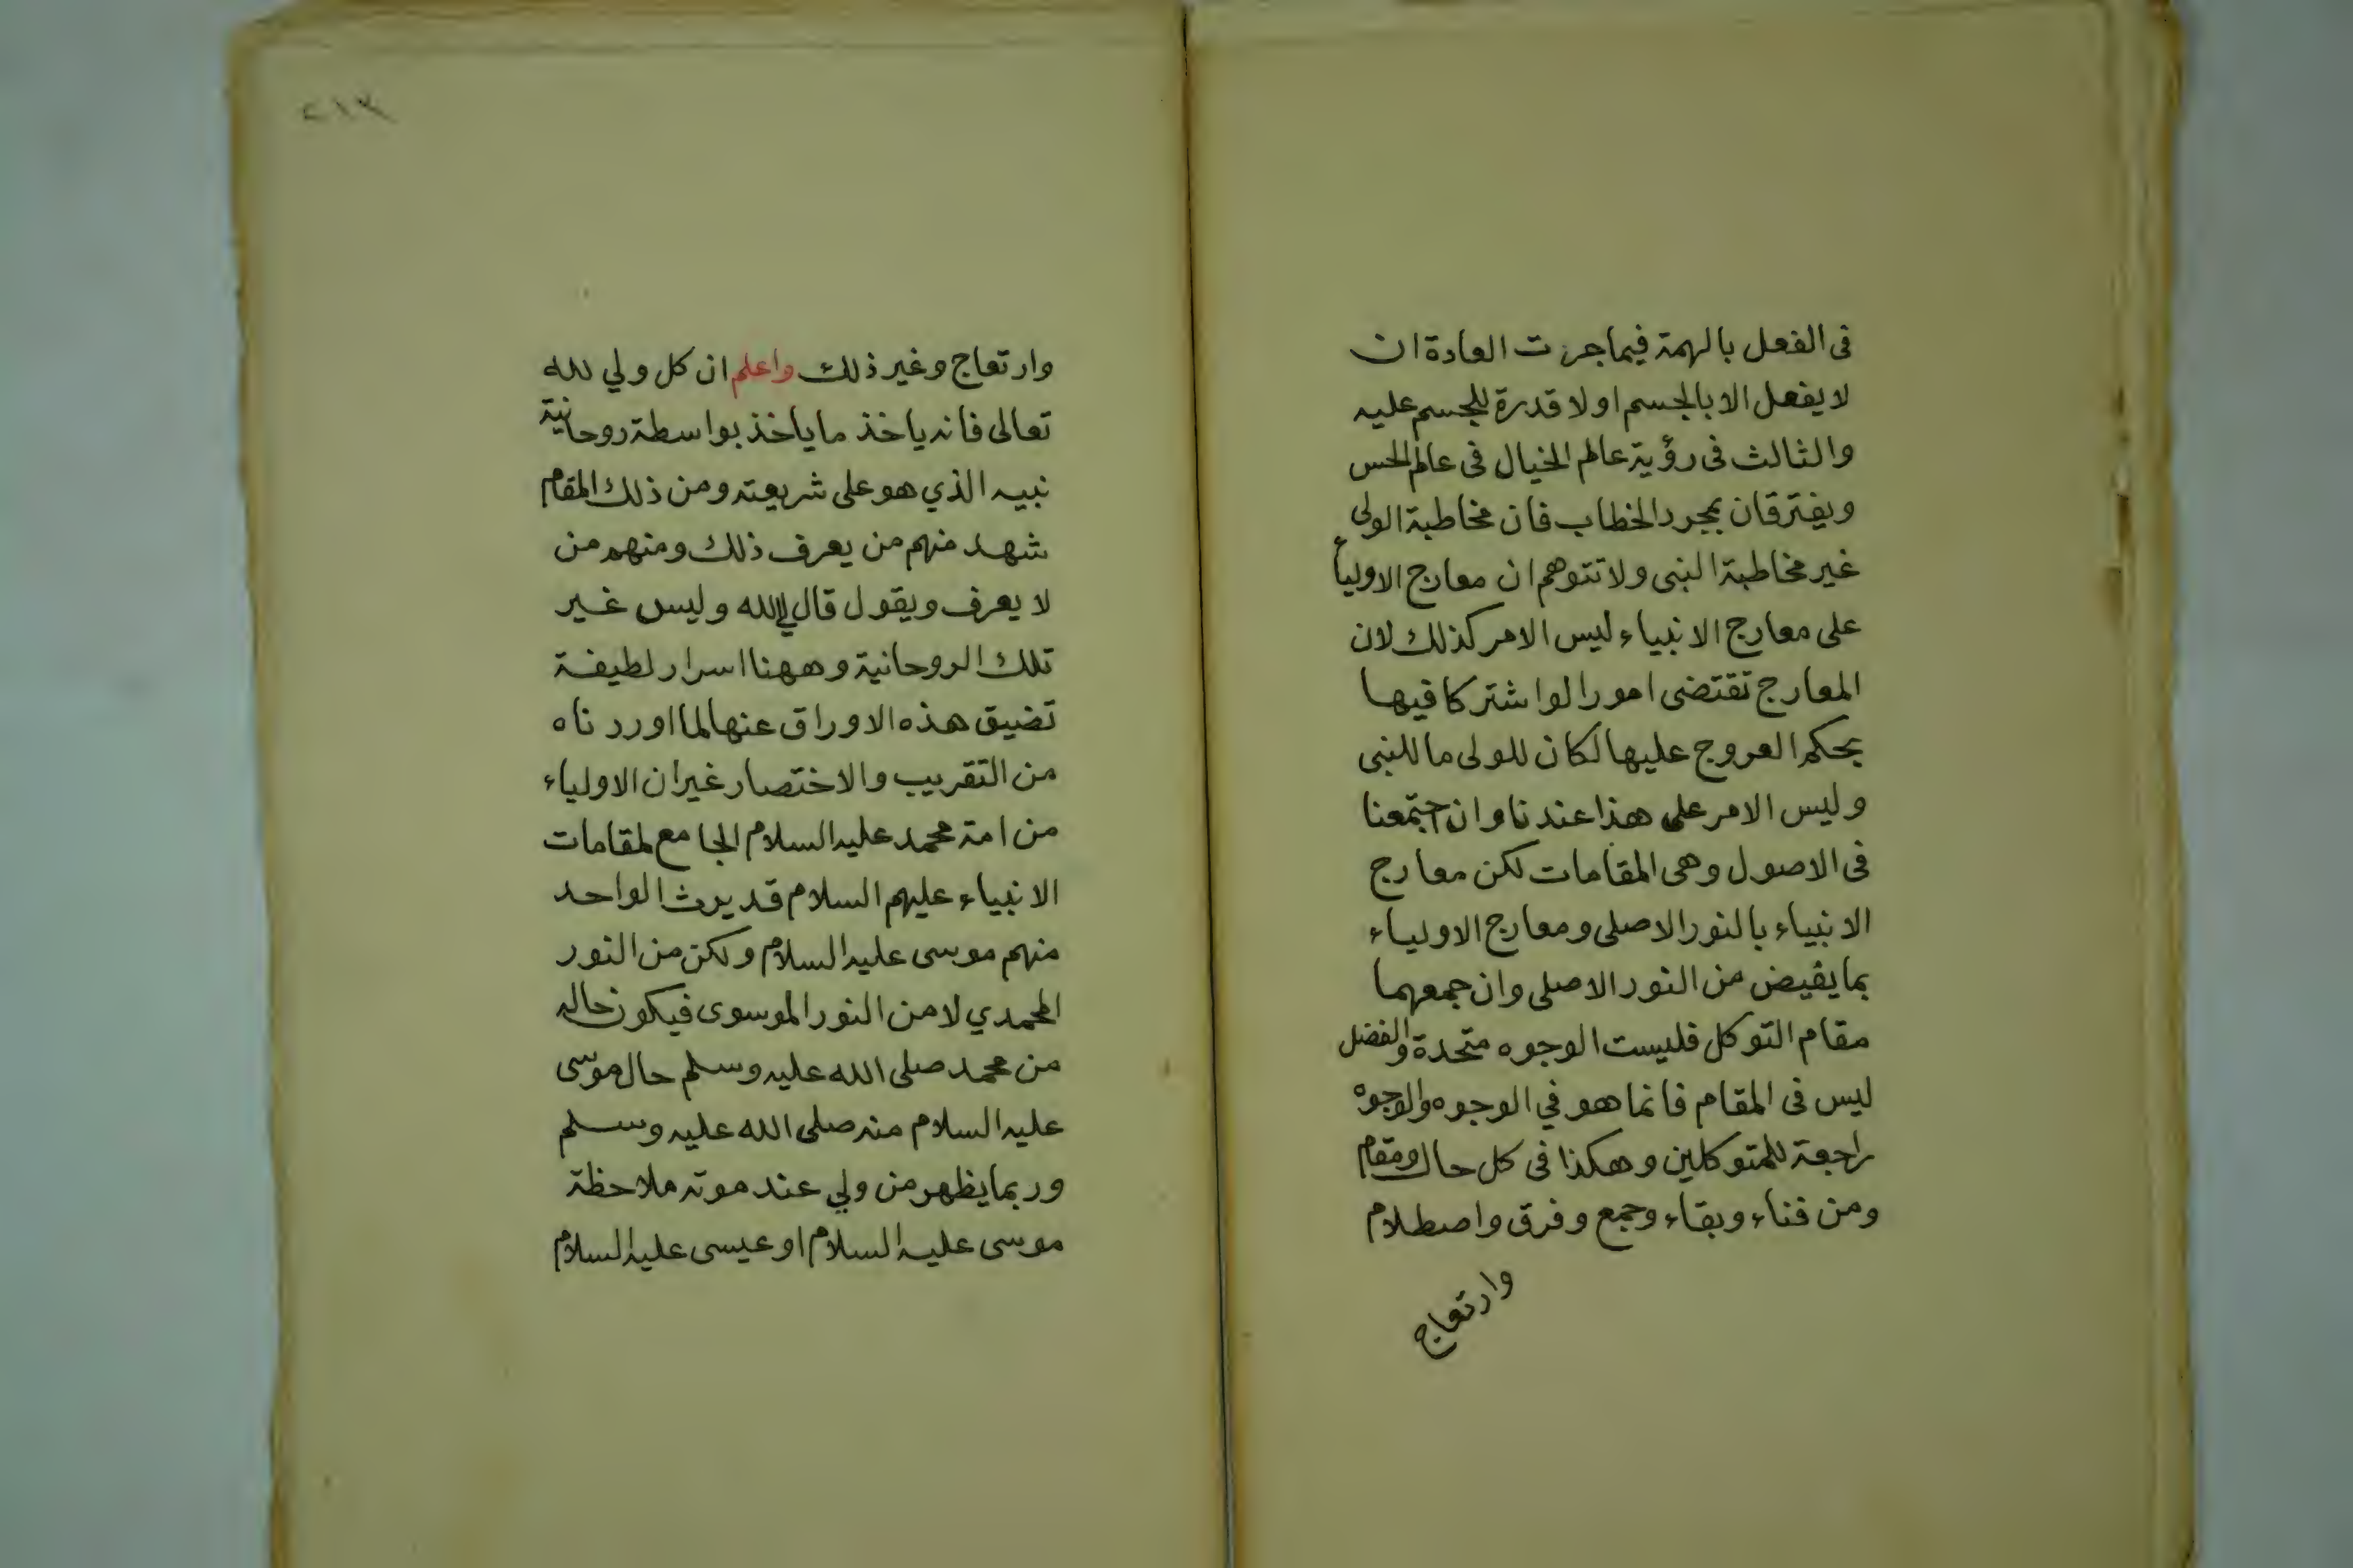 فى الفعل بالهمة فيما جرت العادة ان
لا يفعل الا بالجسم او لا قدرة للجسم عليه
والثالث فى رؤية عالم الخيال فى عالم الحس
ويفترقان بمجرد الخطاب فان مخاطبة الولى
غير مخاطبة النبى ولا تتوهم ان معارج الاولياء
على معارج الانبياء ليس الامر كذلك لان
المعارج تقتضى امورا لو اشتركا فيها
بحكم العروج عليها لكان للولى ما للنبى
وليس الامر على هذا عندنا وان اجتمعنا
فى الاصول وهى المقامات لكن معارج
الانبياء بالنور الاصلى ومعارج الاولياء
بما يفيض من النور الاصلى وان جمعهما
مقام التوكل فليست الوجوه متحدة والفضل
ليس فى المقام فانما هو في الوجوه والوجوه
راجعة للمتوكلين وهكذا فى كل حال ومقام
ومن فناء وبقاء وجمع وفرق واصطلام
وارتعاج
٢١٣
وارتعاج وغير ذلك واعلم ان كل ولي لله
تعالى فانه ياخذ ما ياخذ بواسطة روحانية
نبيه الذي هو على شريعته ومن ذلك المقام
شهد منهم من يعرف ذلك ومنهم من
لا يعرف ويقول قال لي الله وليس غير
تلك الروحانية وههنا اسرار لطيفة
تضيق هذه الاوراق عنها لما اوردناه
من التقريب والاختصار غير ان الاولياء
من امة محمد عليه السلام الجامع لمقامات
الانبياء عليهم السلام قد يرث الواحد
منهم موسى عليه السلام ولكن من النور
المحمدي لا من النور الموسوى فيكون حاله
من محمد صلى الله عليه وسلم حال موسى
عليه السلام منه صلى الله عليه وسلم
وربما يظهر من ولي عند موته ملاحظة
موسى عليه السلام او عيسى عليه السلام